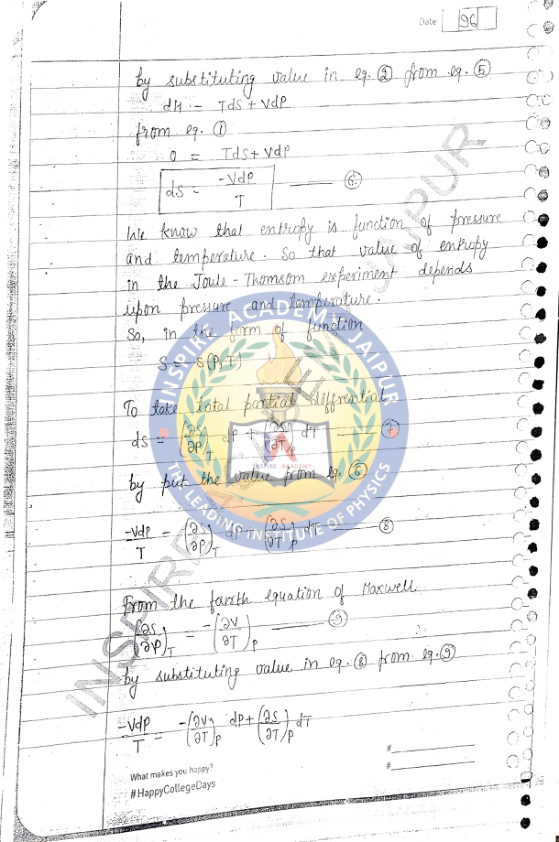 Date 96
by substituting value in eq. ② from eq. ⑤
dH = Tds + Vdp
from eq. ①
0 = Tds + Vdp
ds = -Vdp/T — ⑥
We know that entropy is function of pressure
and temperature. So that value of entropy
in the Joule-Thomsom experiment depends
upon pressure and temperature.
So, in the form of function
S = S(P,T)
To take total partial diffrential
ds = (∂S/∂P)_T dP + (∂S/∂T)_P dT — ⑦
by put the value from eq. ⑥
-Vdp/T = (∂S/∂P)_T dp + (∂S/∂T)_P dT — ⑧
From the fourth equation of Maxwell
(∂S/∂P)_T = -(∂V/∂T)_P — ⑨
by substituting value in eq. ⑧ from eq. ⑨
-Vdp/T = -(∂V/∂T)_P dP + (∂S/∂T)_P dT
What makes you happy?
#HappyCollegeDays
#
#
INSPIRE ACADEMY JAIPUR
INSPIRE ACADEMY
THE LEADING INSTITUTE OF PHYSICS
INSPIRE
JAIPUR